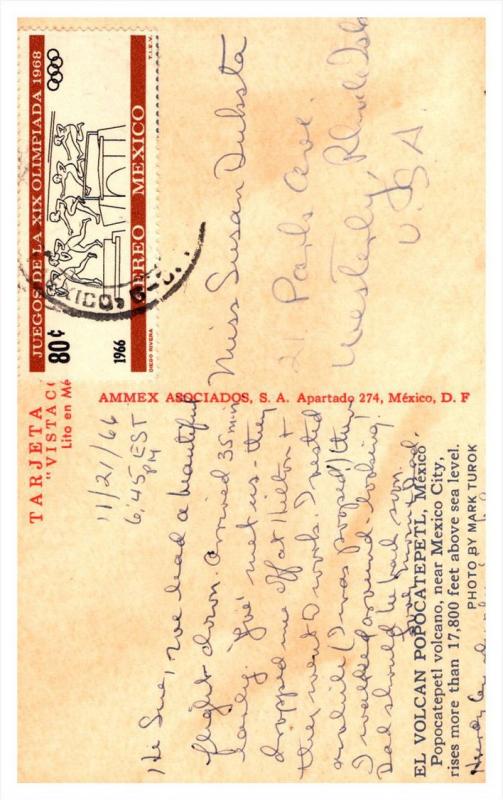 JUEGOS DE LA XIX OLIMPIADA 1968
80¢
1966
AEREO MEXICO
DIEGO RIVERA
T.I.E.V.
MEXICO,
TARJETA
"VISTAC
Lito en Mé
AMMEX ASOCIADOS, S. A. Apartado 274, México, D. F
Miss Susan Dubsta
21 Park Ave.
Westerly, Rhode Isl
U.S.A.
11/21/66
6:45 EST
PM
Hi Sue, we had a beautiful
flight down. Arrived 35 min
early. met us - they
dropped me off at Hilton +
they went to work. I rested
awhile (I was pooped) then
I walked around looking!
Dad should be back soon.
Love, Mom + Dad.
EL VOLCAN POPOCATEPETL, México
Popocatepetl volcano, near Mexico City,
rises more than 17,800 feet above sea level.
PHOTO BY MARK TUROK